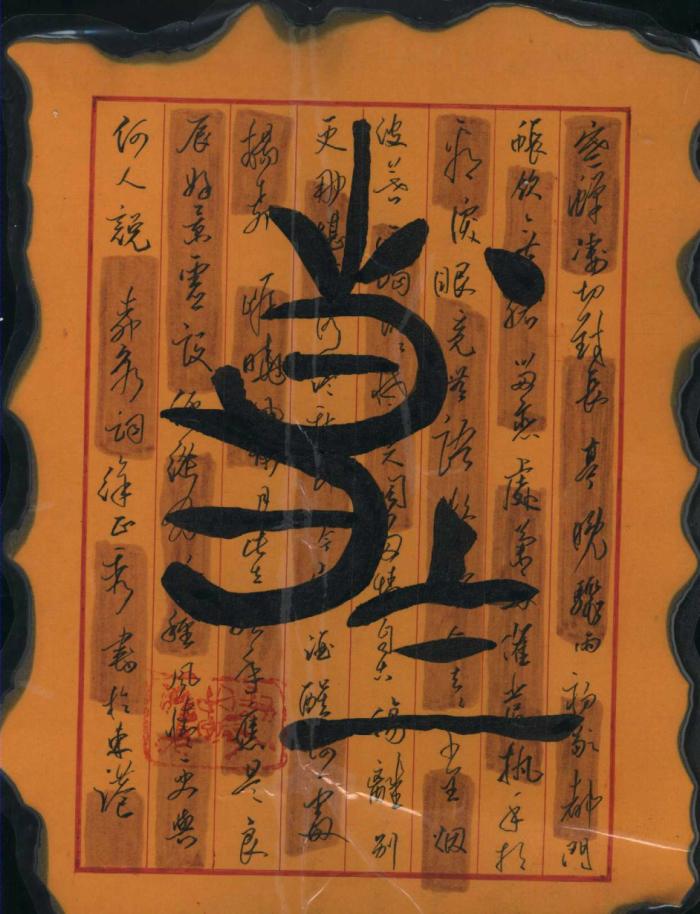 寒蟬凄切對長亭晚驟雨初歇都門
帳飲無緒留戀處蘭舟催發執手相
看淚眼竟無語去去千里烟
波暮靄天闊多情自古傷離別
更那堪今宵酒醒何處
楊柳岸曉風殘月此去年應是良
辰好景虛設便縱有種風情更與
何人說 柳永詞徐正秀書於東港